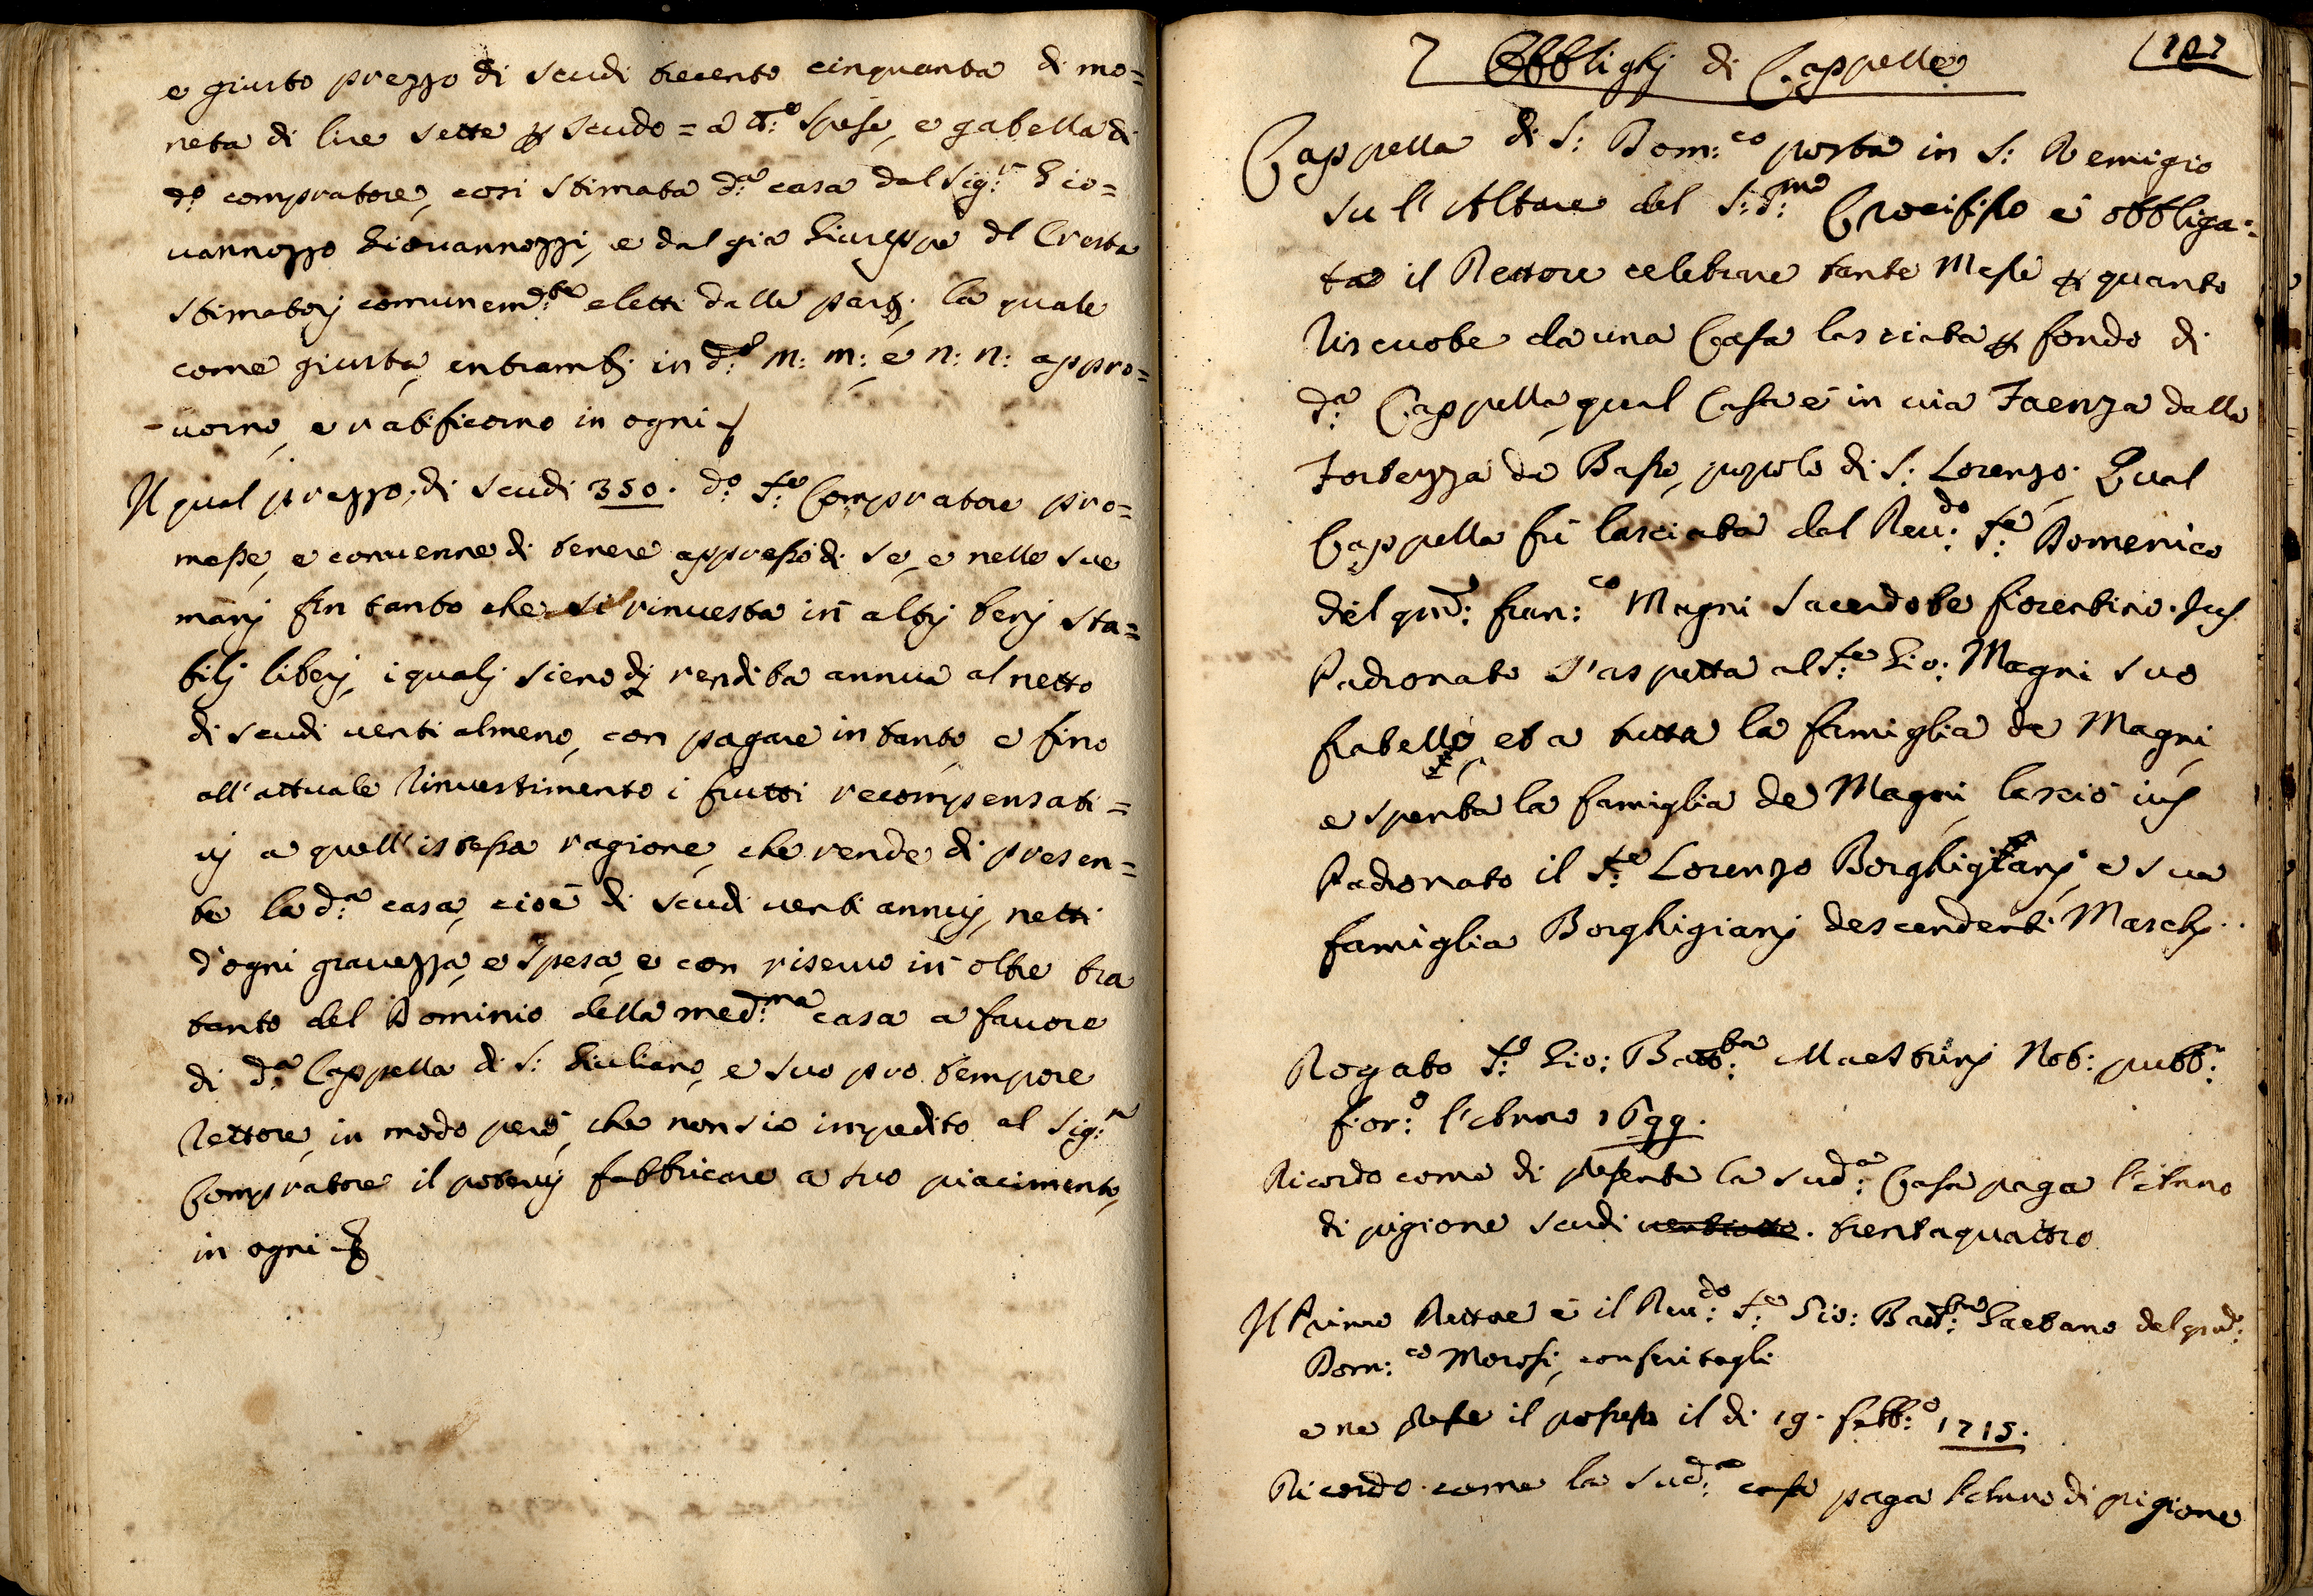 e giusto prezzo di scudi trecento cinquanta di mo=
neta di lire sette p scudo = a tt:e spese, e gabella di
do: compratore, cosi stimata d:a casa dal Sig:r Gio=
uannozzo Giouannozzi, e dal già Giuseppe del Cresta
stimatorj comunem:te eletti dalle partj; la quale
come giusta, entrambj in d:i m: m: e n: n: appro=
-uorno, e ratificorno in ogni
Il qual prezzo, di scudi 350. do: S:e Compratore pro=
messe, e conuenne di tenere appresso di se, e nelle sue
manj fin tanto che si rinuesta in altrj benj sta=
bilj liberj, i qualj sieno di rendita annua al netto
di scudi uenti almeno, con pagare in tanto, e fino
all'attuale Rinuestimento i frutti recompensati=
uj a quell'istessa ragione, che rende di presen=
te la d:a casa, cioè di scudi uenti annuj, netti
d'ogni grauezza, e spesa, e con riseruo in oltre tra
tanto del Dominio della med:ma casa a fauore
di d:a Cappella di S: Giuliano, e suo pro tempore
Rettore, in modo però, che non sia impedito al Sig:r
Compratore il poterui fabbricare a suo piacimento,
in ogni
7 Obblighj di Cappelle 102
Cappella di S: Dom:co posta in S: Remigio
su l'Altare del S:S:mo Crocifisso è obbliga=
to il Rettore celebrare tante Messe p quanto
Riscuote da una Casa lasciata p fondo di
d:a Cappella, qual Casa è in uia Faenza dalla
Fortezza da Basso, popolo di S: Lorenzo: Qual
Cappella fù lasciata dal Reu:do S:e Domenico
del qnd: fran:co Magni Sacerdote fiorentino. Jus
Padronato s'aspetta al S:e Gio: Magni suo
fratello, et a tutta la famiglia de Magni
e spenta la famiglia de Magni, lasciò ius
Padronato il S:e Lorenzo Borghigianj, e sua
famiglia Borghigianj descendenti Maschj..
Rogato S:e Gio: Batt:ta Maesturj Not: pubb:
fior:o l'Anno 1699.
Ricordo come di presente la sud:a Casa paga l'Anno
di pigione scudi uentiotto. trentaquattro
Il Primo Rettore è il Reu:do S:e Gio: Batt:ta Gaetano del qnd:
Dom:co Morosi, conferitagli
e ne prese il possesso il di 19. febb:o 1715.
Ricordo come la sud:a casa paga l'Anno di pigione